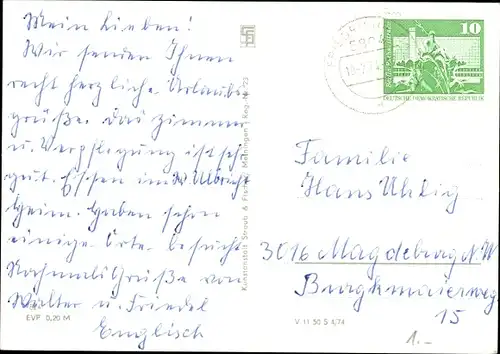 Mein Lieben!
Wir senden Ihnen
recht herzliche Urlaubs
grüße. Das Zimmer
u. Verpflegung ist sehr
gut. Essen im W. Ulbricht
Heim. Haben schon
einige Orte besucht
Nochmals Grüße von
Walter u. Friedel
Englisch
EVP 0,20 M
Kunstanstalt Straub & Fischer Meiningen
V 11 50 S 4/74
10
DEUTSCHE DEMOKRATISCHE REPUBLIK
Familie
Hans Uhlig
3016 Magdeburg N.W
Burgkmaierweg
15
1.-